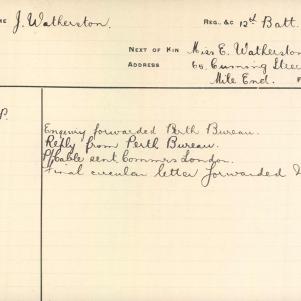 ME J. Watherston. REG. &C 12th Batt.
NEXT OF KIN Miss E. Watherston
ADDRESS 60 Cuming Street
Mile End. F
P.
Enquiry forwarded Perth Bureau.
Reply from Perth Bureau.
P/Cable sent Commrs London.
Final circular letter forwarded